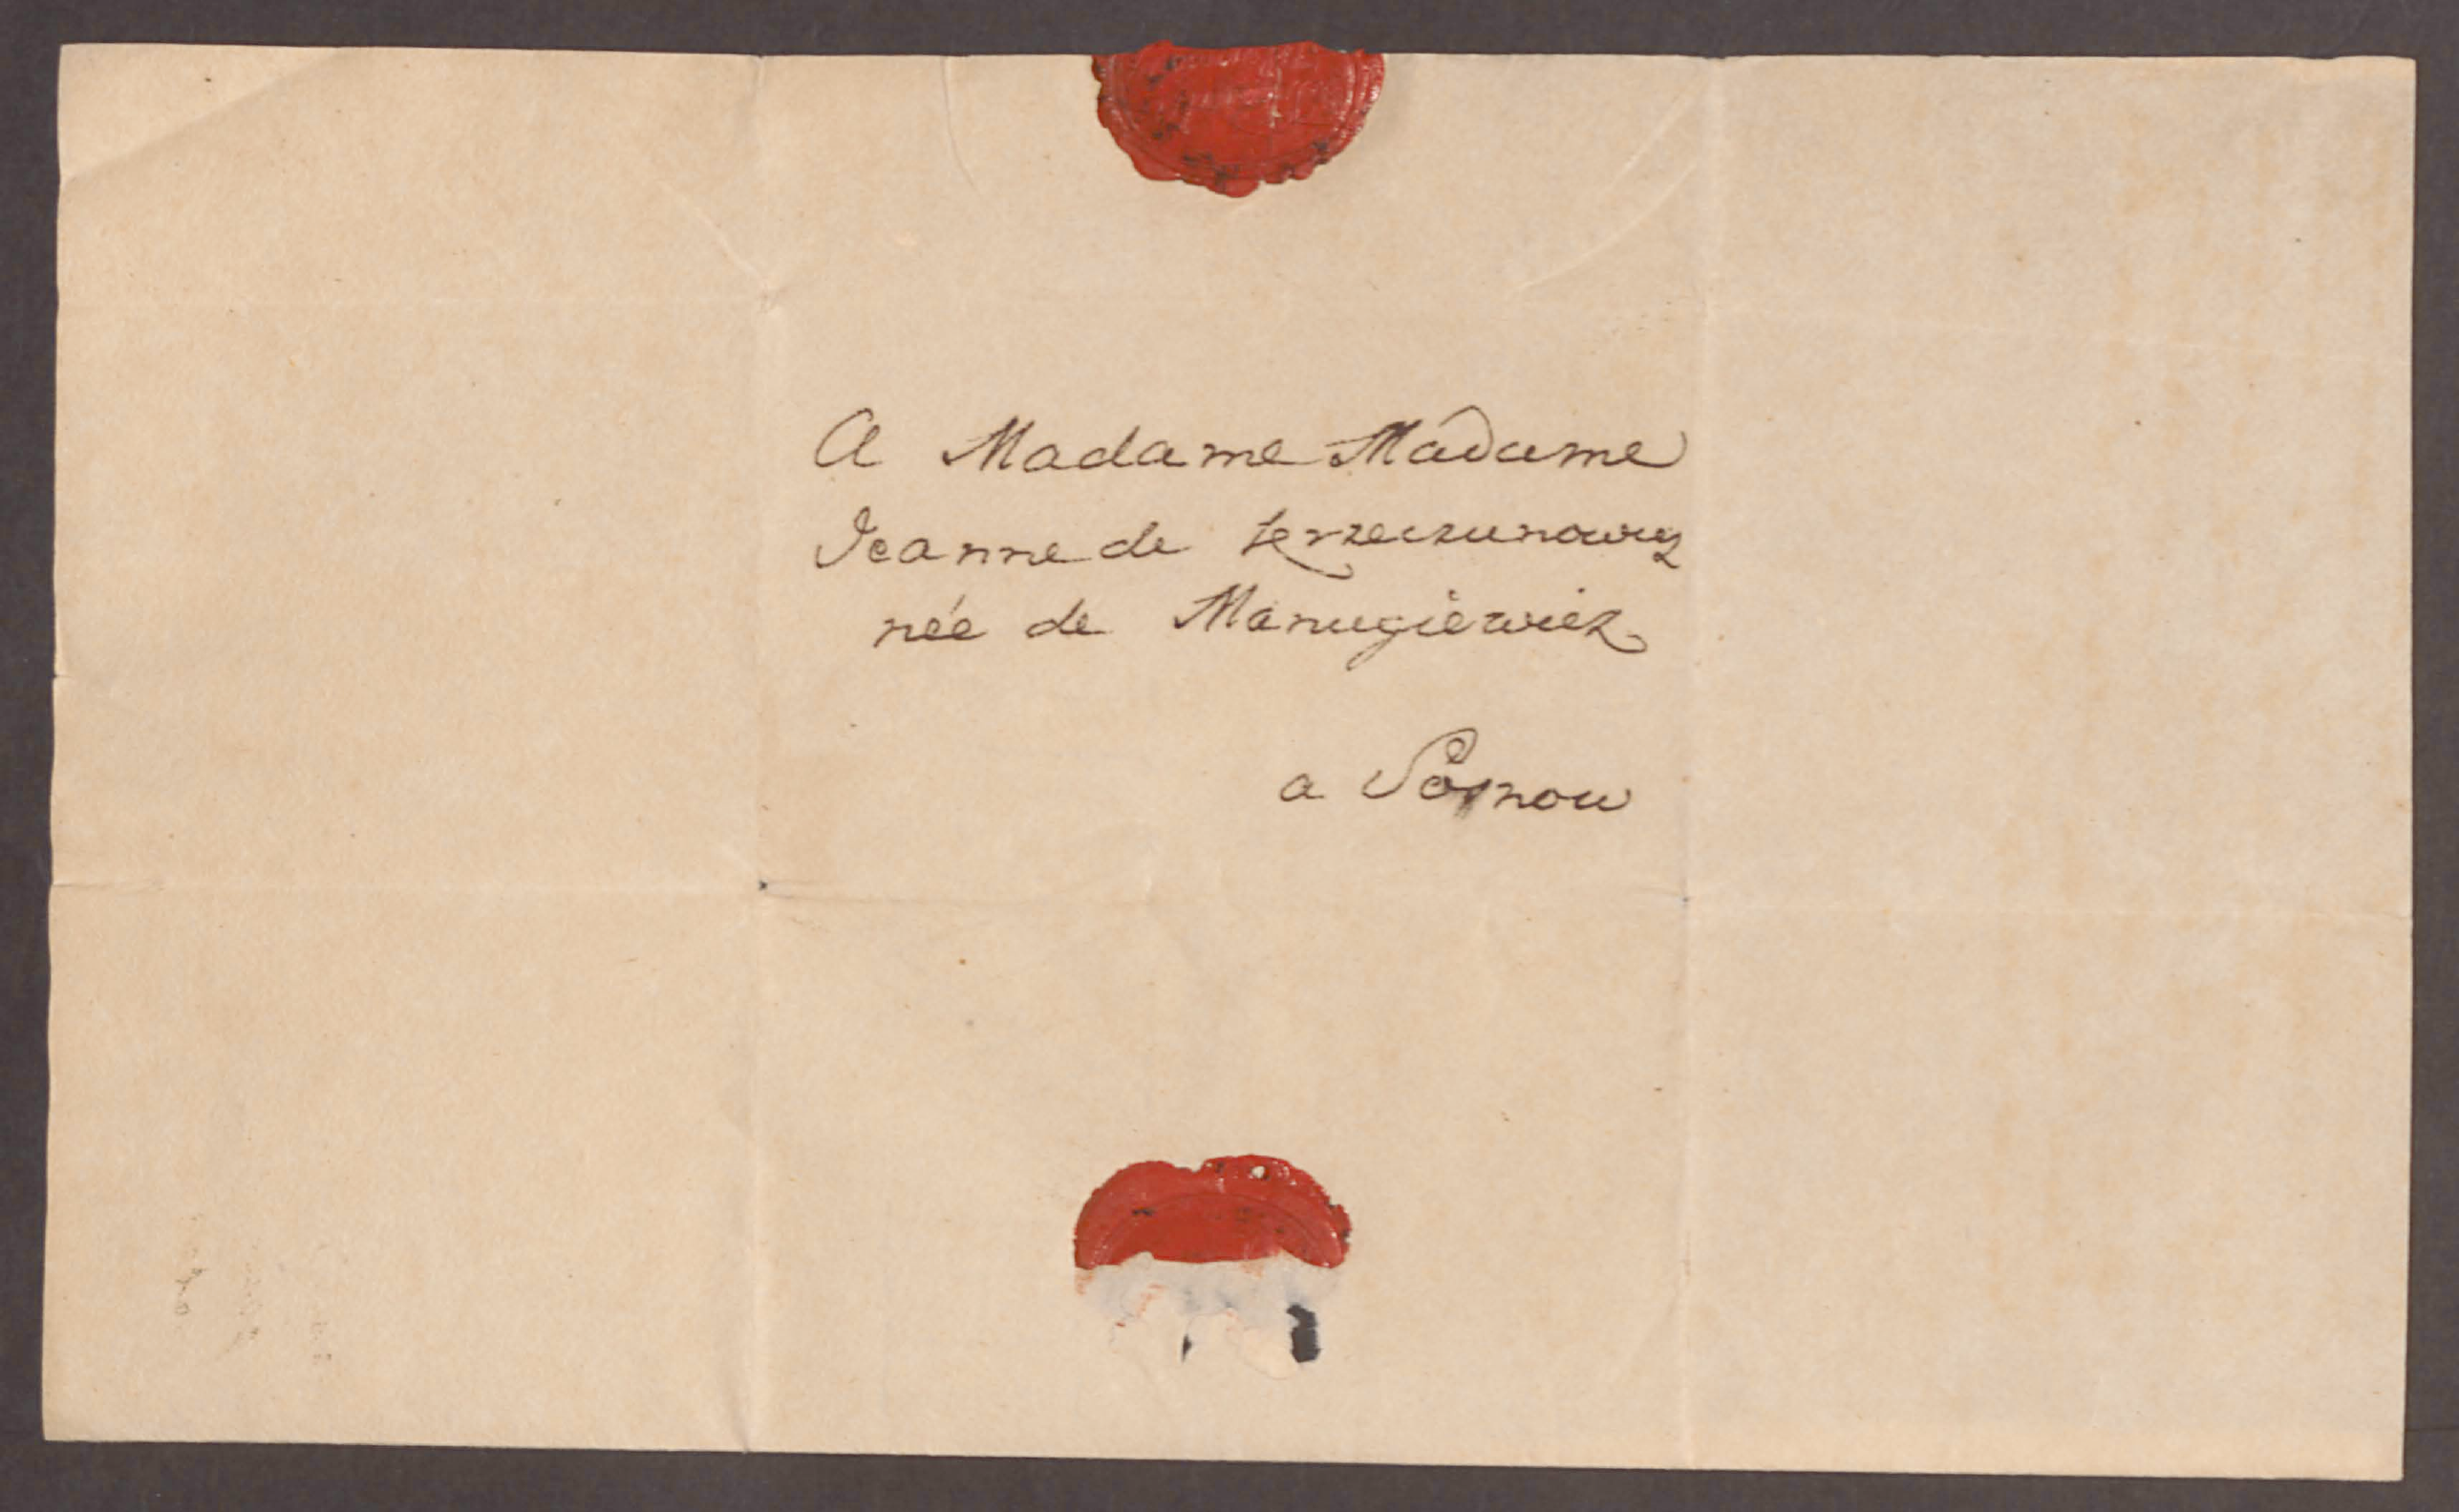 A Madame Madame
Jeanne de Krzeczunowicz
née de Manugiewicz
a